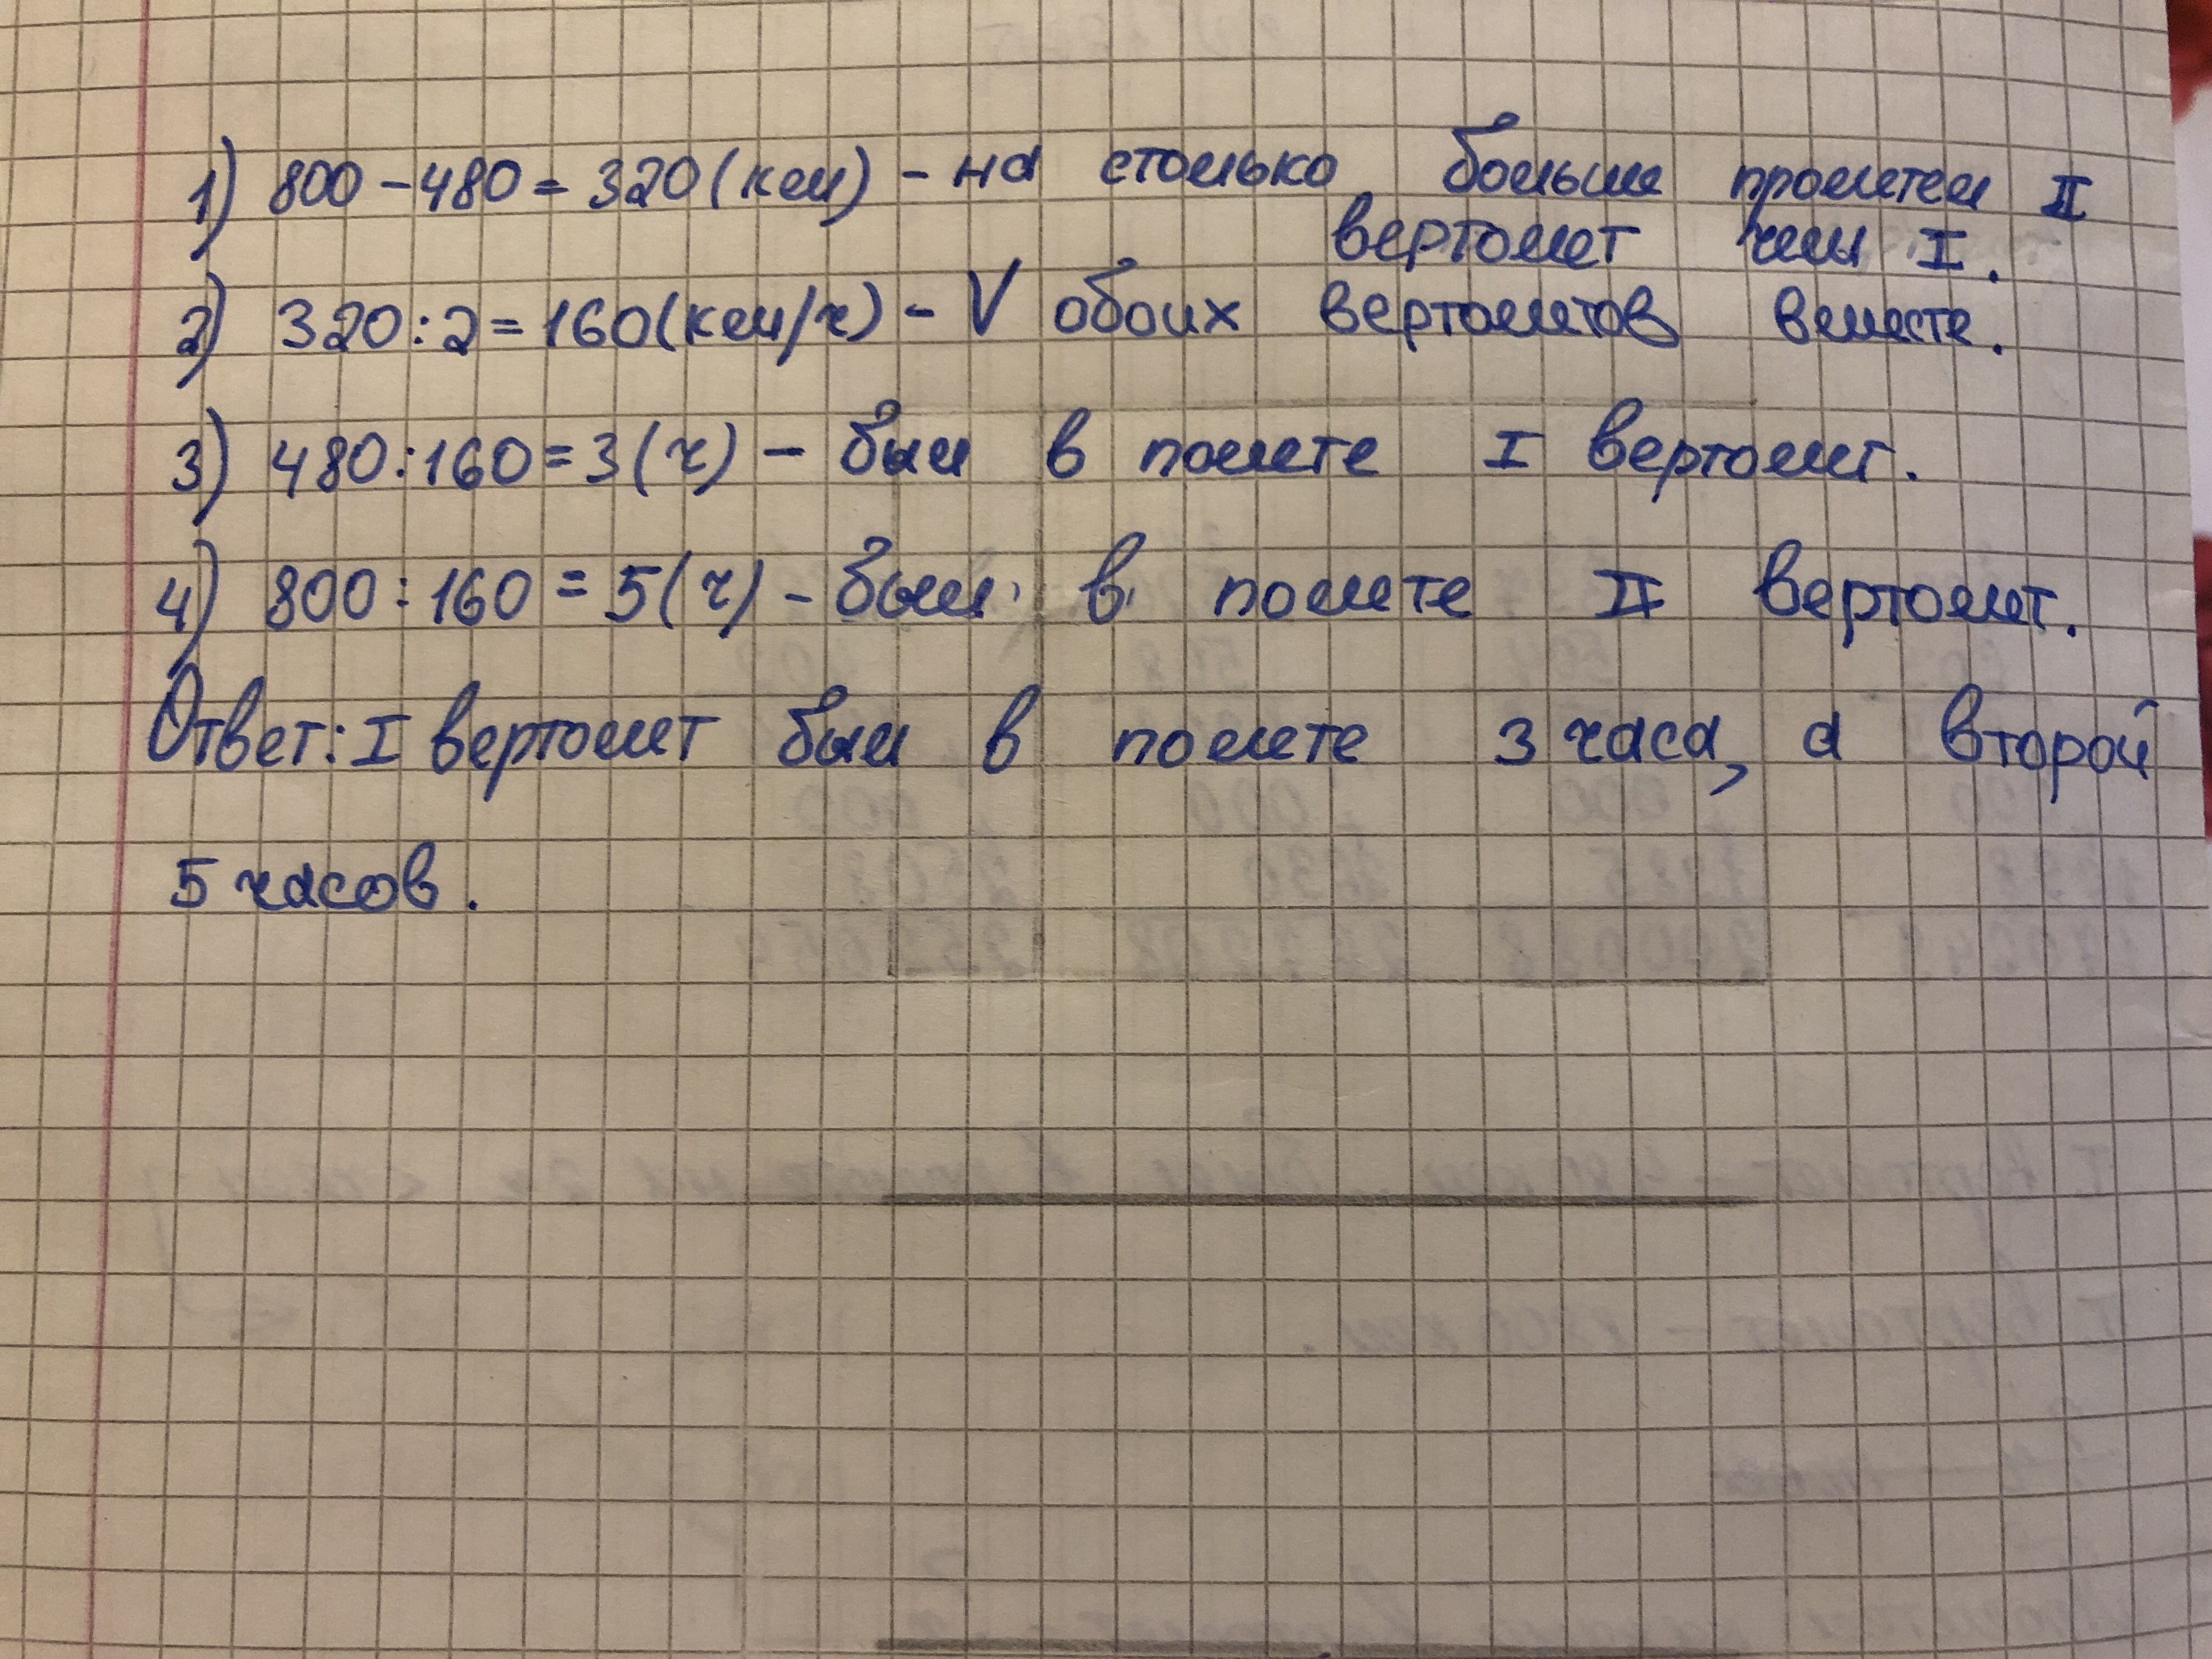 1) 800-480=320(км) - на столько больше пролетел II
вертолет чем I.
2) 320:2=160(км/ч) - V обоих вертолетов вместе.
3) 480:160=3(ч) - был в полете I вертолет.
4) 800:160=5(ч) - был в полете II вертолет.
Ответ: I вертолет был в полете 3 часа, а второй
5 часов.